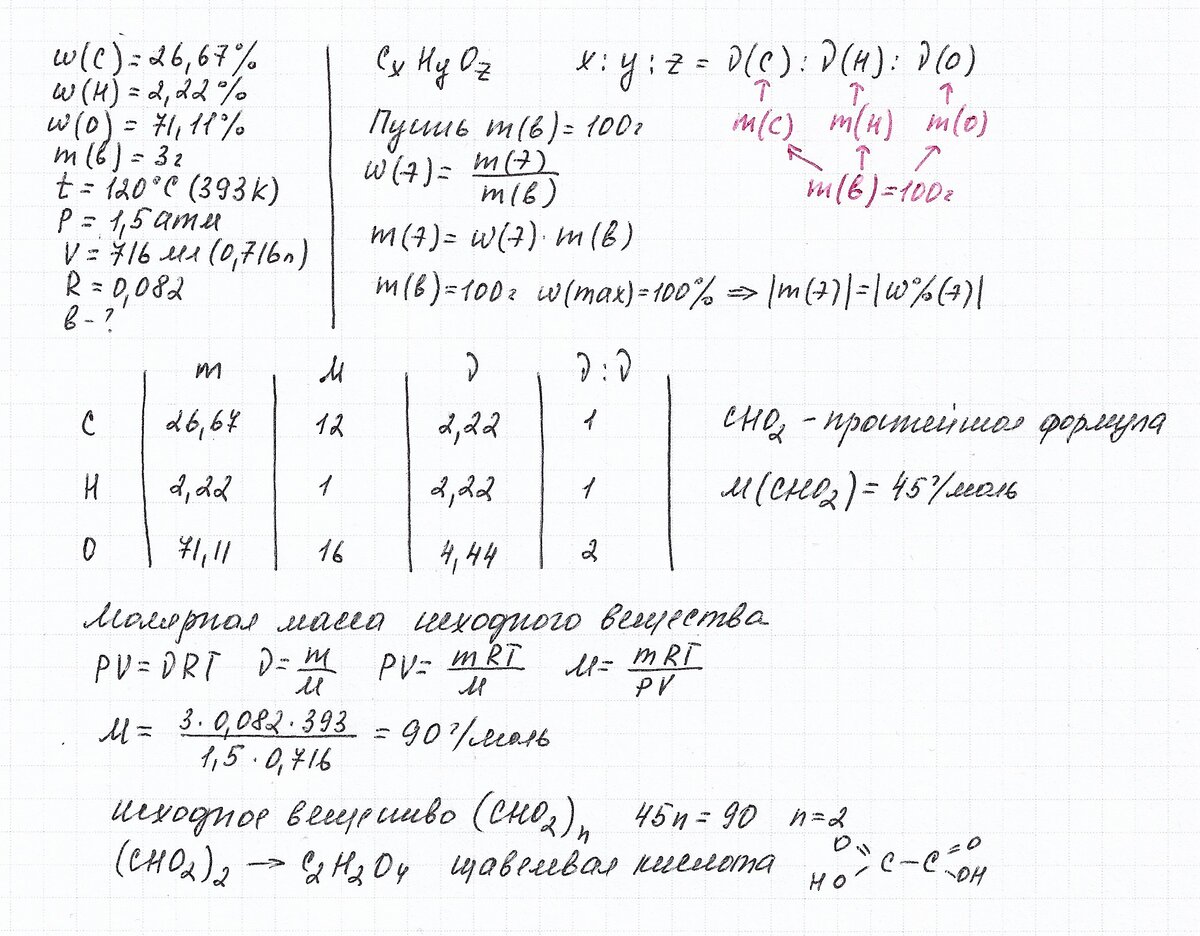 w(C) = 26,67%
w(H) = 2,22%
w(O) = 71,11%
m(в) = 3г
t = 120°C (393K)
P = 1,5 атм
V = 716 мл (0,716л)
R = 0,082
в - ?
CxHyOz x : y : z = ν(C) : ν(H) : ν(O)
m(C) m(H) m(O)
m(в)=100г
Пусть m(в) = 100г
w(э) = m(э)/m(в)
m(э) = w(э) · m(в)
m(в)=100г w(max)=100% ⇒ |m(э)|=|w%(э)|
m M ν ν:ν
C 26,67 12 2,22 1
H 2,22 1 2,22 1
O 71,11 16 4,44 2
CHO₂ - простейшая формула
M(CHO₂) = 45г/моль
Молярная масса исходного вещества
PV = νRT ν = m/M PV = mRT/M M = mRT/PV
M = 3 · 0,082 · 393 / 1,5 · 0,716 = 90г/моль
исходное вещество (CHO₂)n 45n = 90 n=2
(CHO₂)₂ → C₂H₂O₄ щавелевая кислота
O C – C O
HO OH